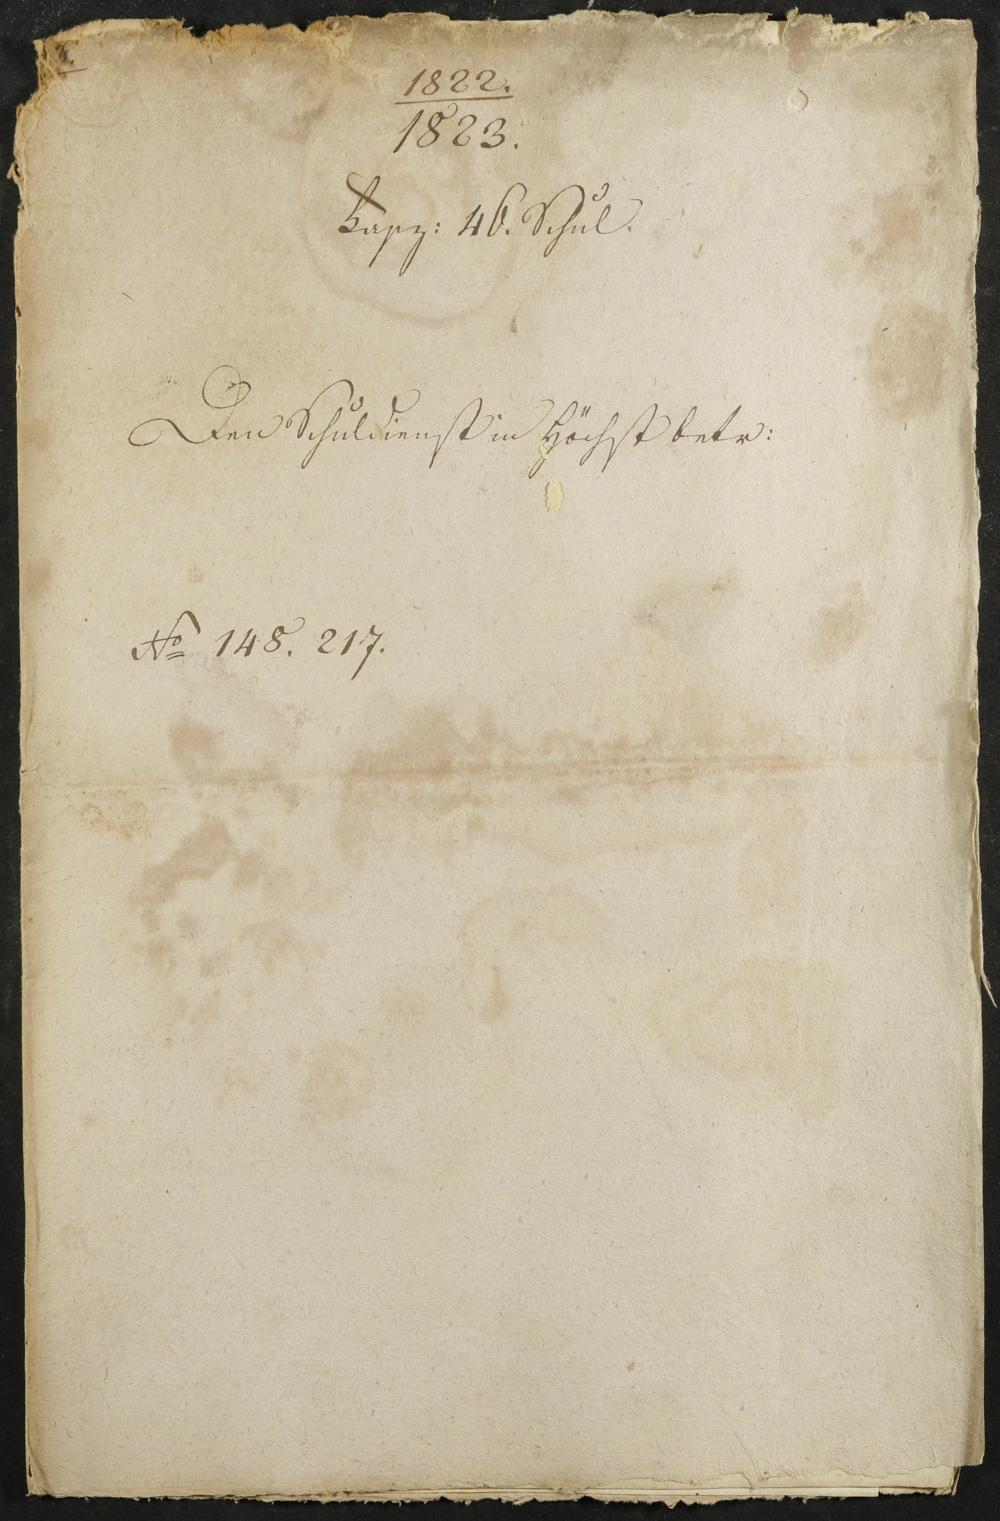 1822.
1823.
Fasz: 46. Schul.
Den Schuldienst in Höchst betr:
No 148. 217.